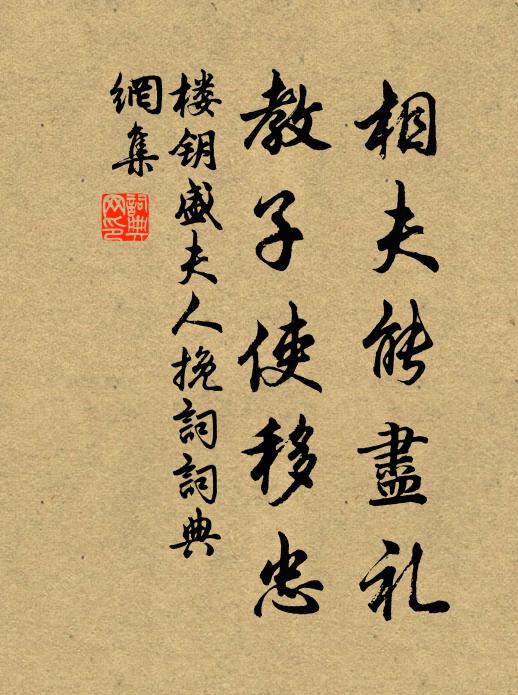 相夫能盡礼
教子使移忠
楼钥盛夫人挽詞詞典
網集
詞典
网印